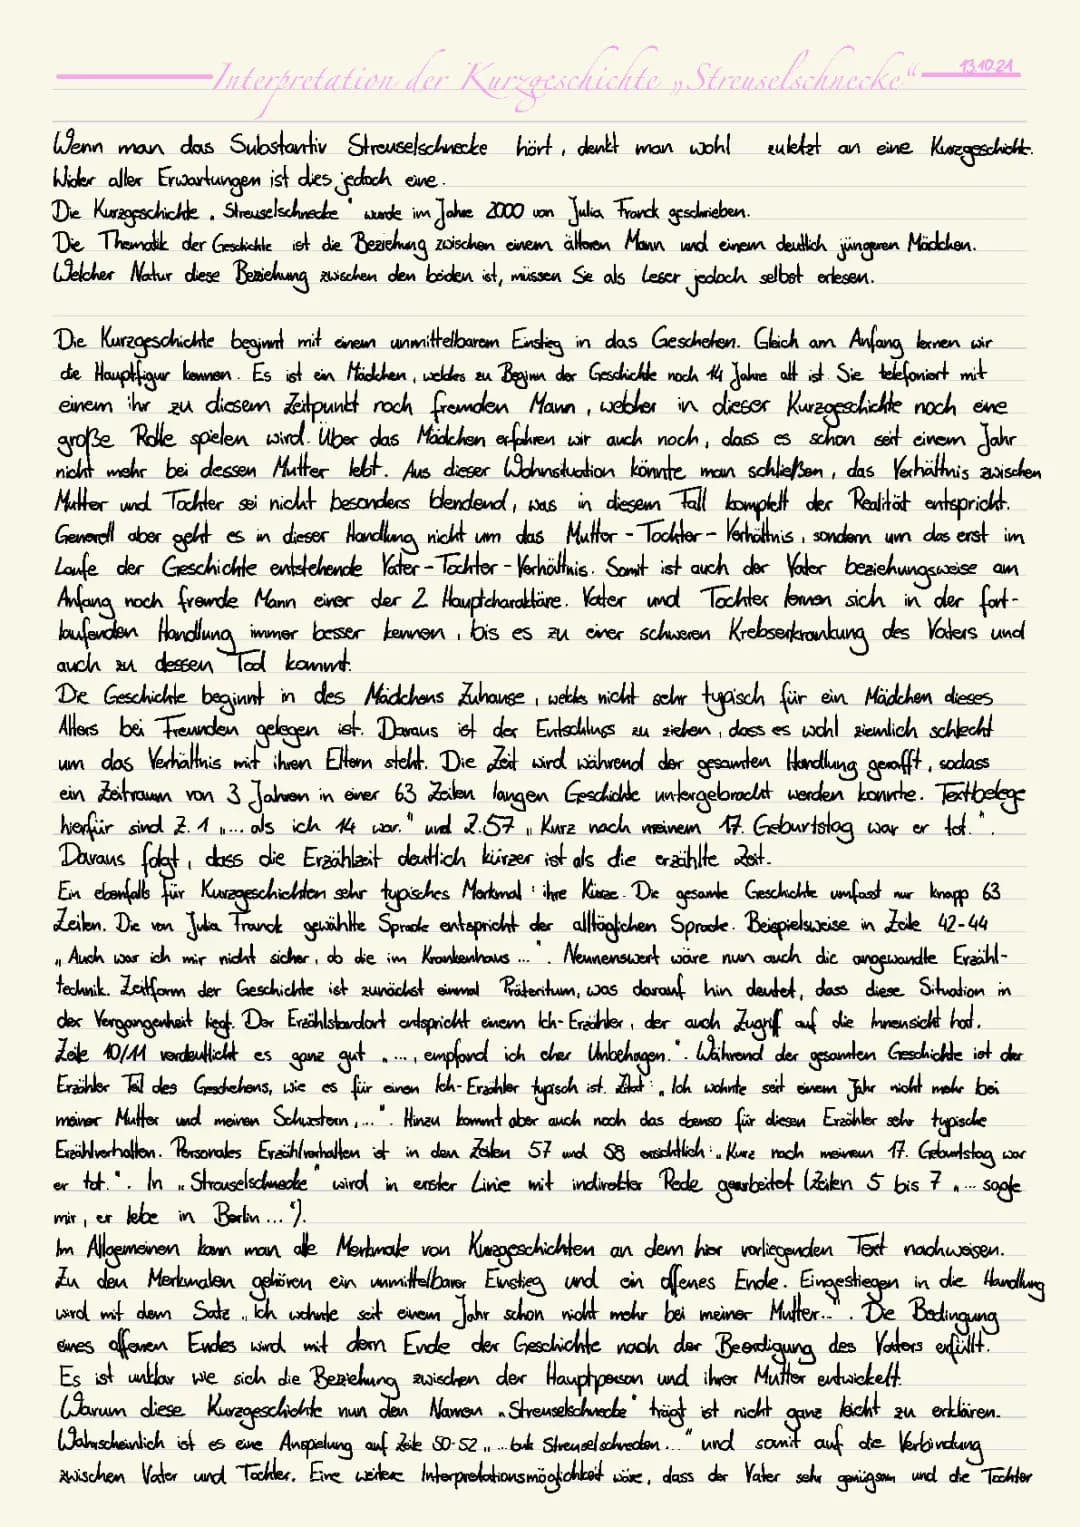 Interpretation der Kurzgeschichte „Streuselschnecke“ 13.10.21
Wenn man das Substantiv Streuselschnecke hört, denkt man wohl zuletzt an eine Kurzgeschichte.
Wider aller Erwartungen ist dies jedoch eine.
Die Kurzgeschichte „Streuselschnecke“ wurde im Jahre 2000 von Julia Franck geschrieben.
Die Thematik der Geschichte ist die Beziehung zwischen einem älteren Mann und einem deutlich jüngeren Mädchen.
Welcher Natur diese Beziehung zwischen den beiden ist, müssen Sie als Leser jedoch selbst erlesen.
Die Kurzgeschichte beginnt mit einem unmittelbarem Einstieg in das Geschehen. Gleich am Anfang lernen wir
die Hauptfigur kennen. Es ist ein Mädchen, welches zu Beginn der Geschichte noch 14 Jahre alt ist. Sie telefoniert mit
einem ihr zu diesem Zeitpunkt noch fremden Mann, welcher in dieser Kurzgeschichte noch eine
große Rolle spielen wird. Über das Mädchen erfahren wir auch noch, dass es schon seit einem Jahr
nicht mehr bei dessen Mutter lebt. Aus dieser Wohnsituation könnte man schließen, das Verhältnis zwischen
Mutter und Tochter sei nicht besonders blendend, was in diesem Fall komplett der Realität entspricht.
Generell aber geht es in dieser Handlung nicht um das Mutter-Tochter-Verhältnis, sondern um das erst im
Laufe der Geschichte entstehende Vater-Tochter-Verhältnis. Somit ist auch der Vater beziehungsweise am
Anfang noch fremde Mann einer der 2 Hauptcharaktäre. Vater und Tochter lernen sich in der fort-
laufenden Handlung immer besser kennen, bis es zu einer schweren Krebserkrankung des Vaters und
auch zu dessen Tod kommt.
Die Geschichte beginnt in des Mädchens Zuhause, welches nicht sehr typisch für ein Mädchen dieses
Alters bei Freunden gelegen ist. Daraus ist der Entschluss zu ziehen, dass es wohl ziemlich schlecht
um das Verhältnis mit ihren Eltern steht. Die Zeit wird während der gesamten Handlung gerafft, sodass
ein Zeitraum von 3 Jahren in einer 63 Zeilen langen Geschichte untergebracht werden konnte. Textbelege
hierfür sind Z. 1 „... als ich 14 war.“ und Z.57 „Kurz nach meinem 17. Geburtstag war er tot.“.
Daraus folgt, dass die Erzählzeit deutlich kürzer ist als die erzählte Zeit.
Ein ebenfalls für Kurzgeschichten sehr typisches Merkmal: ihre Kürze. Die gesamte Geschichte umfasst nur knapp 63
Zeilen. Die von Julia Franck gewählte Sprache entspricht der alltäglichen Sprache. Beispielsweise in Zeile 42-44
„Auch war ich mir nicht sicher, ob die im Krankenhaus ...“. Nennenswert wäre nun auch die angewandte Erzähl-
technik. Zeitform der Geschichte ist zunächst einmal Präteritum, was darauf hin deutet, dass diese Situation in
der Vergangenheit liegt. Der Erzählstandort entspricht einem Ich-Erzähler, der auch Zugriff auf die Innensicht hat.
Zeile 10/11 verdeutlicht es ganz gut „..., empfand ich eher Unbehagen.“. Während der gesamten Geschichte ist der
Erzähler Teil des Geschehens, wie es für einen Ich-Erzähler typisch ist. Zitat: „Ich wohnte seit einem Jahr nicht mehr bei
meiner Mutter und meinen Schwestern,...“. Hinzu kommt aber auch noch das ebenso für diesen Erzähler sehr typische
Erzählverhalten. Personales Erzählverhalten ist in den Zeilen 57 und 58 ersichtlich: „Kurz nach meinem 17. Geburtstag war
er tot.“. In „Streuselschnecke“ wird in erster Linie mit indirekter Rede gearbeitet (Zeilen 5 bis 7 „... sagte
mir, er lebe in Berlin...“).
Im Allgemeinen kann man alle Merkmale von Kurzgeschichten an dem hier vorliegenden Text nachweisen.
Zu den Merkmalen gehören ein unmittelbarer Einstieg und ein offenes Ende. Eingestiegen in die Handlung
wird mit dem Satz „Ich wohnte seit einem Jahr schon nicht mehr bei meiner Mutter...“. Die Bedingung
eines offenen Endes wird mit dem Ende der Geschichte nach der Beerdigung des Vaters erfüllt.
Es ist unklar wie sich die Beziehung zwischen der Hauptperson und ihrer Mutter entwickelt.
Warum diese Kurzgeschichte nun den Namen „Streuselschnecke“ trägt ist nicht ganz leicht zu erklären.
Wahrscheinlich ist es eine Anspielung auf Zeile 50-52 „... buk Streuselschnecken...“ und somit auf die Verbindung
zwischen Vater und Tochter. Eine weitere Interpretationsmöglichkeit wäre, dass der Vater sehr genügsam und die Tochter